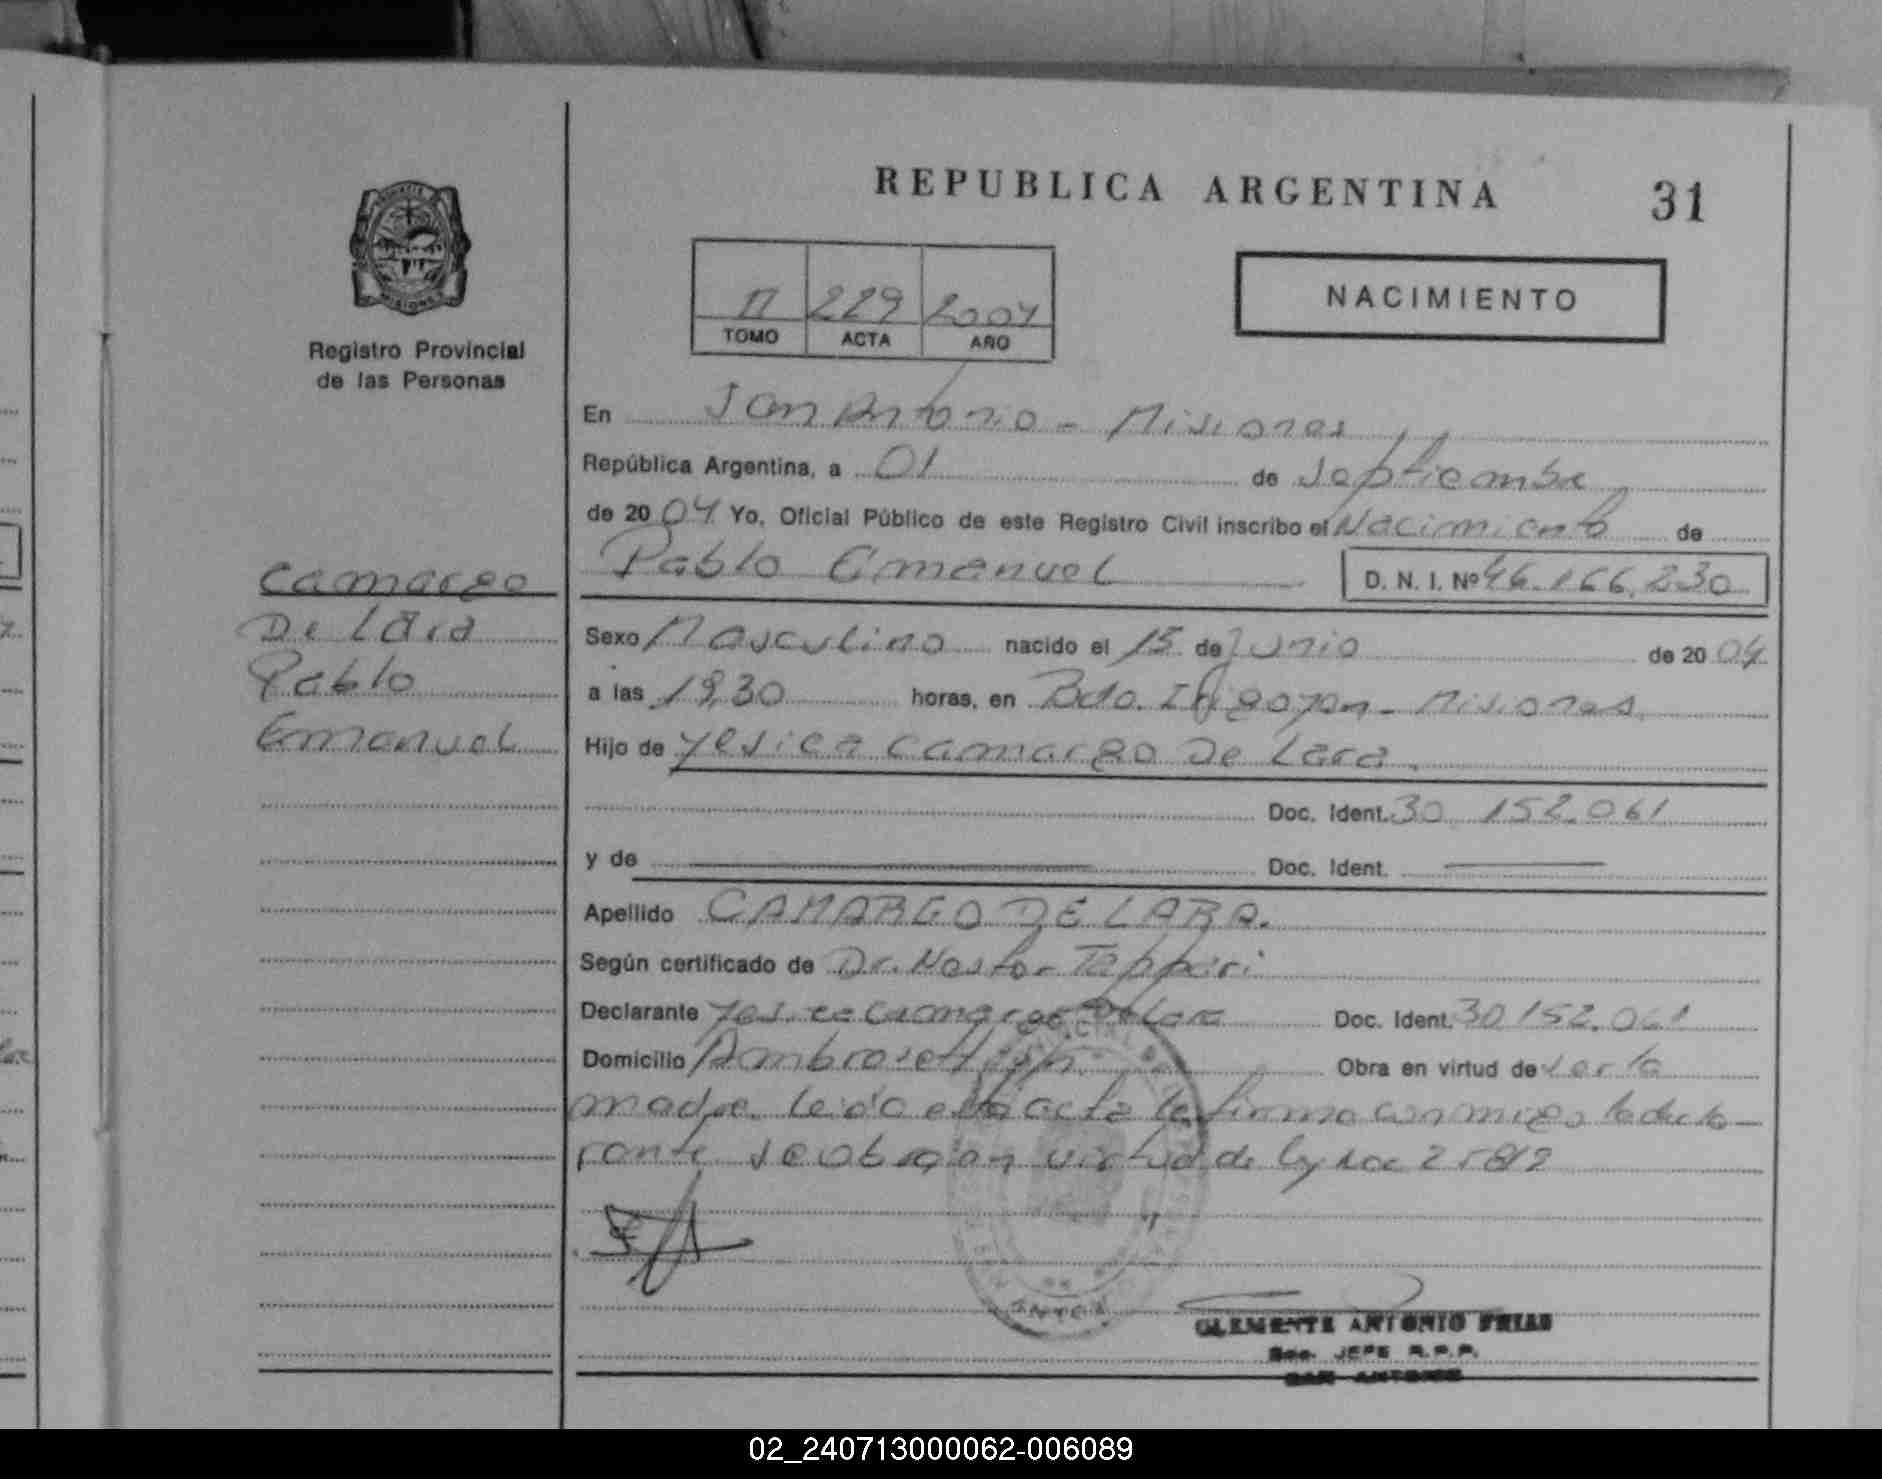 REPUBLICA ARGENTINA
31
Registro Provincial
de las Personas
II 229 2004
TOMO ACTA AÑO
NACIMIENTO
En San Antonio - Misiones
República Argentina, a 01 de Septiembre
de 2004 Yo, Oficial Público de este Registro Civil inscribo el Nacimiento de
Pablo Emanuel D. N. I. Nº 46.166.230
Camargo
De Lara
Pablo
Emanuel
Sexo Masculino nacido el 15 de Junio de 2004
a las 19,30 horas, en Bdo. Irigoyen - Misiones
Hijo de Yesica Camargo De Lara.
Doc. Ident. 30.152.061
y de Doc. Ident.
Apellido CAMARGO DE LARA.
Según certificado de Dr. Nestor Tappari
Declarante Yesica Camargo De Lara Doc. Ident. 30.152.061
Domicilio Ambrosetti s/n. Obra en virtud de ser la
madre. leido esta acta la firma conmigo la decla-
rante se obra en virtud de ley nac 25819
CLEMENTE ANTONIO FRIAS
Sec. JEFE R.P.P.
SAN ANTONIO
02_240713000062-006089